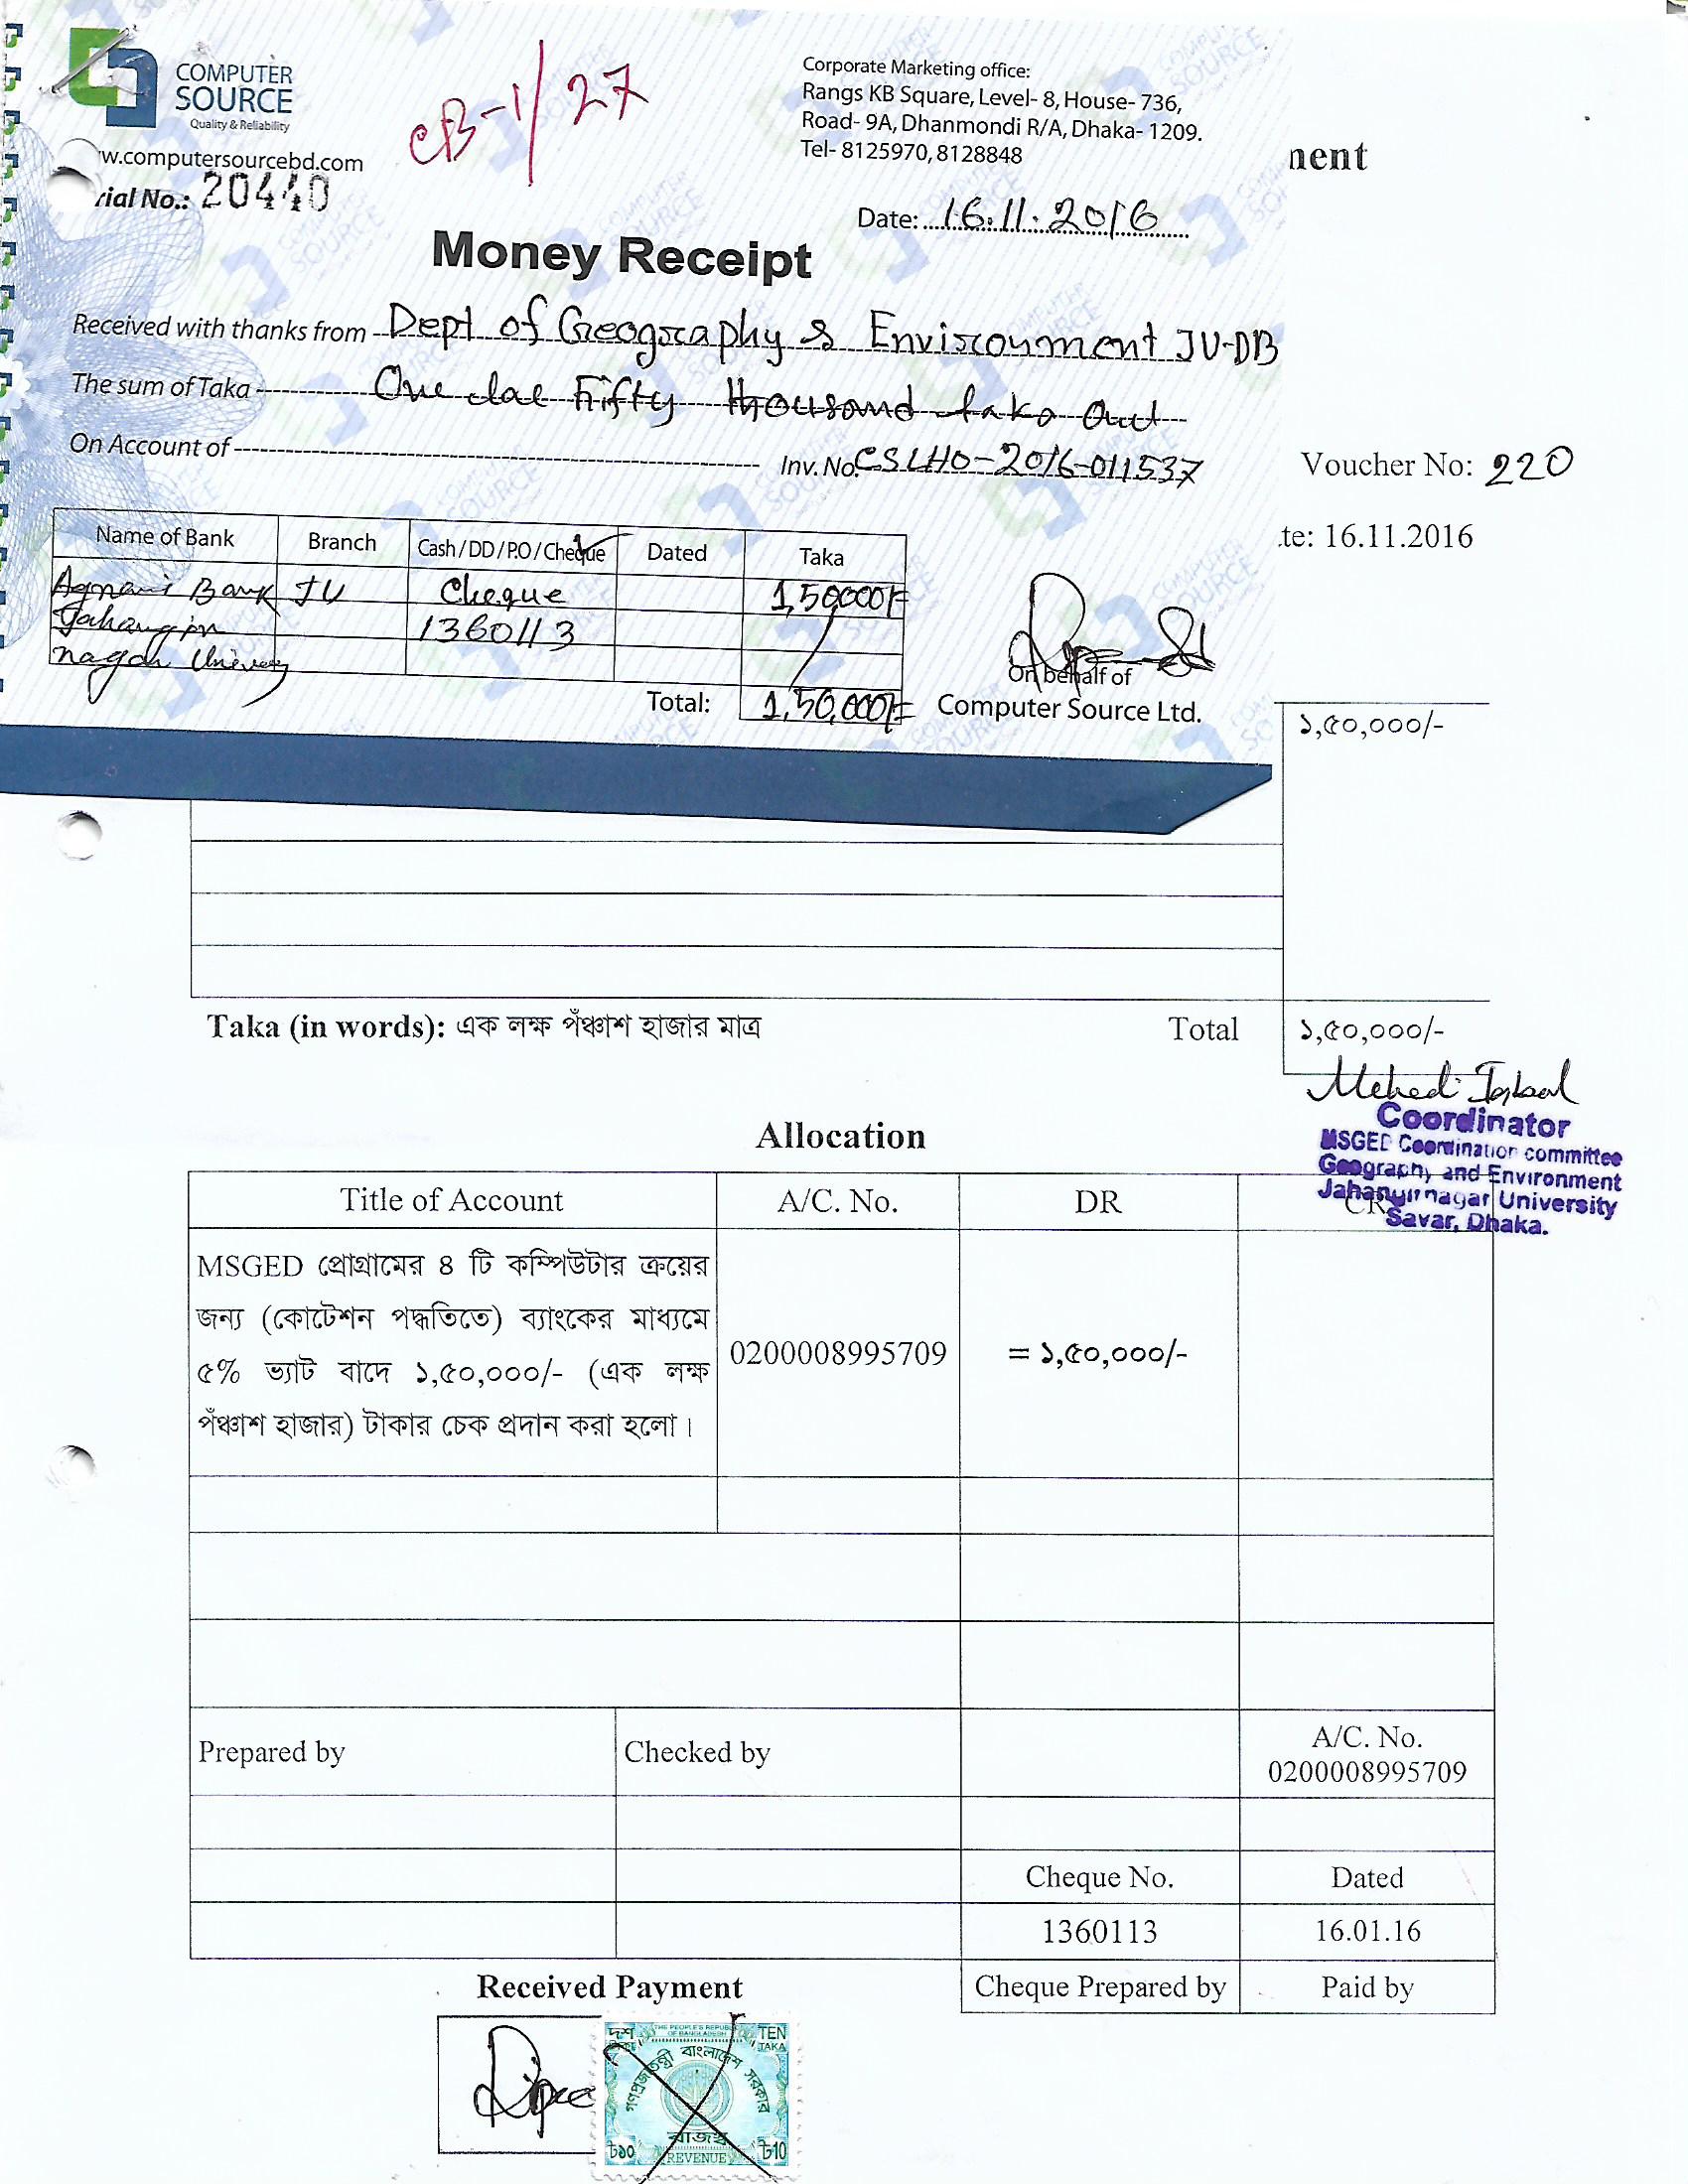 COMPUTER
SOURCE
Quality & Reliability
w.computersourcebd.com
rial No.: 20440
CB-1/27
Corporate Marketing office:
Rangs KB Square, Level- 8, House- 736,
Road- 9A, Dhanmondi R/A, Dhaka- 1209.
Tel- 8125970, 8128848
nent
Date: 16.11.2016
Money Receipt
Received with thanks from Dept of Geography & Environment JU-DB
The sum of Taka One lac Fifty thousand taka
On Account of Inv. No. CSLHO-2016-011537
Voucher No: 220
te: 16.11.2016
Name of Bank Branch Cash/DD/P.O/Cheque Dated Taka
Agrani Bank JU Cheque 1,50000/=
Jahangir 1360113
nagar University
Total: 1,50,000/=
On behalf of
Computer Source Ltd.
১,৫০,০০০/-
Taka (in words): এক লক্ষ পঁঞ্চাশ হাজার মাত্র Total ১,৫০,০০০/-
Mehedi Iqbal
Coordinator
MSGED Coordination committee
Geography and Environment
Jahangirnagar University
Savar, Dhaka.
Allocation
Title of Account A/C. No. DR CR
MSGED প্রোগ্রামের ৪ টি কম্পিউটার ক্রয়ের
জন্য (কোটেশন পদ্ধতিতে) ব্যাংকের মাধ্যমে
৫% ভ্যাট বাদে ১,৫০,০০০/- (এক লক্ষ
পঁঞ্চাশ হাজার) টাকার চেক প্রদান করা হলো।
0200008995709 = ১,৫০,০০০/-
Prepared by Checked by A/C. No.
0200008995709
Cheque No. Dated
1360113 16.01.16
Received Payment Cheque Prepared by Paid by
দশ THE PEOPLE'S REPUBLIC OF BANGLADESH TEN
TAKA
গণপ্রজাতন্ত্রী বাংলাদেশ সরকার
রাজস্ব
৳১০ REVENUE ৳10